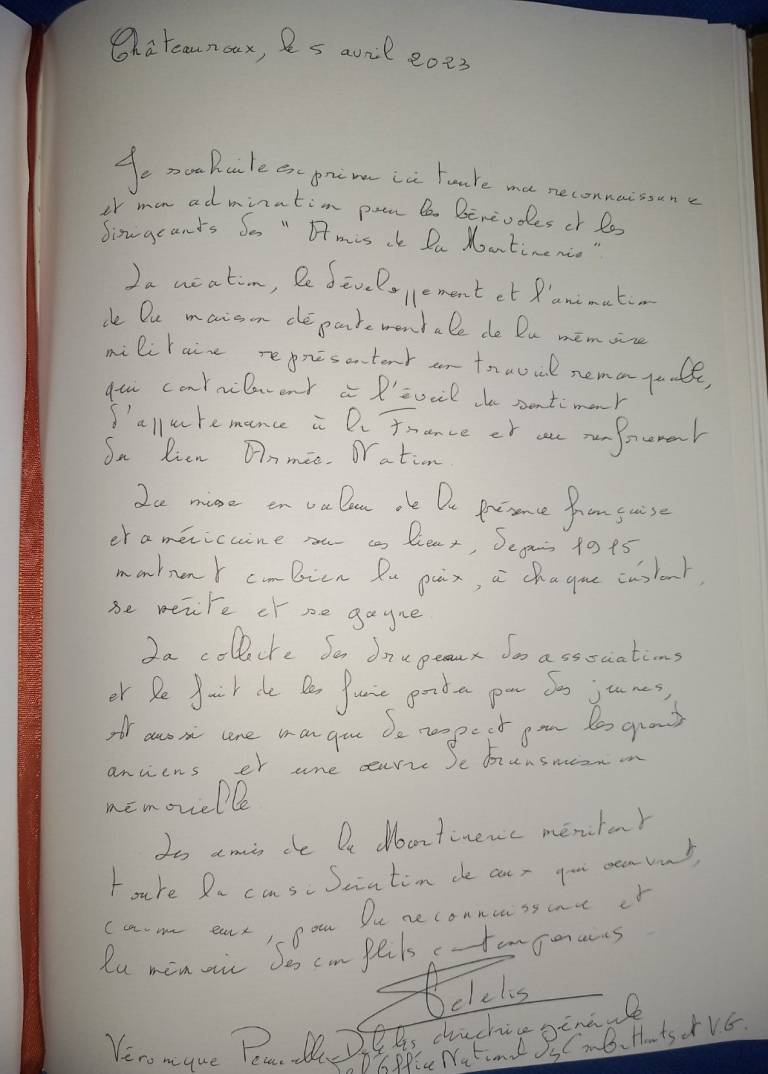 Châteauroux, le 5 avril 2023
Je souhaite exprimer ici toute ma reconnaissance
et mon admiration pour les bénévoles et les
dirigeants des "Amis de la Martinerie".
La création, le développement et l'animation
de la maison départementale de la mémoire
militaire représentent un travail remarquable,
qui contribuent à l'éveil du sentiment
d'appartenance à la France et au renforcement
du lien Armée-Nation.
La mise en valeur de la présence française
et américaine sur ces lieux, depuis 1915
montrent combien la paix, à chaque instant,
se mérite et se gagne.
La collecte des drapeaux des associations
et le fait de les faire porter par des jeunes,
est aussi une marque de respect pour les grands
anciens et une œuvre de transmission
mémorielle.
Les amis de la Martinerie méritent
toute la considération de ceux qui œuvrent,
comme eux, pour la reconnaissance et
la mémoire des conflits contemporains.
Véronique directrice générale
Office National des Combattants et V.G.